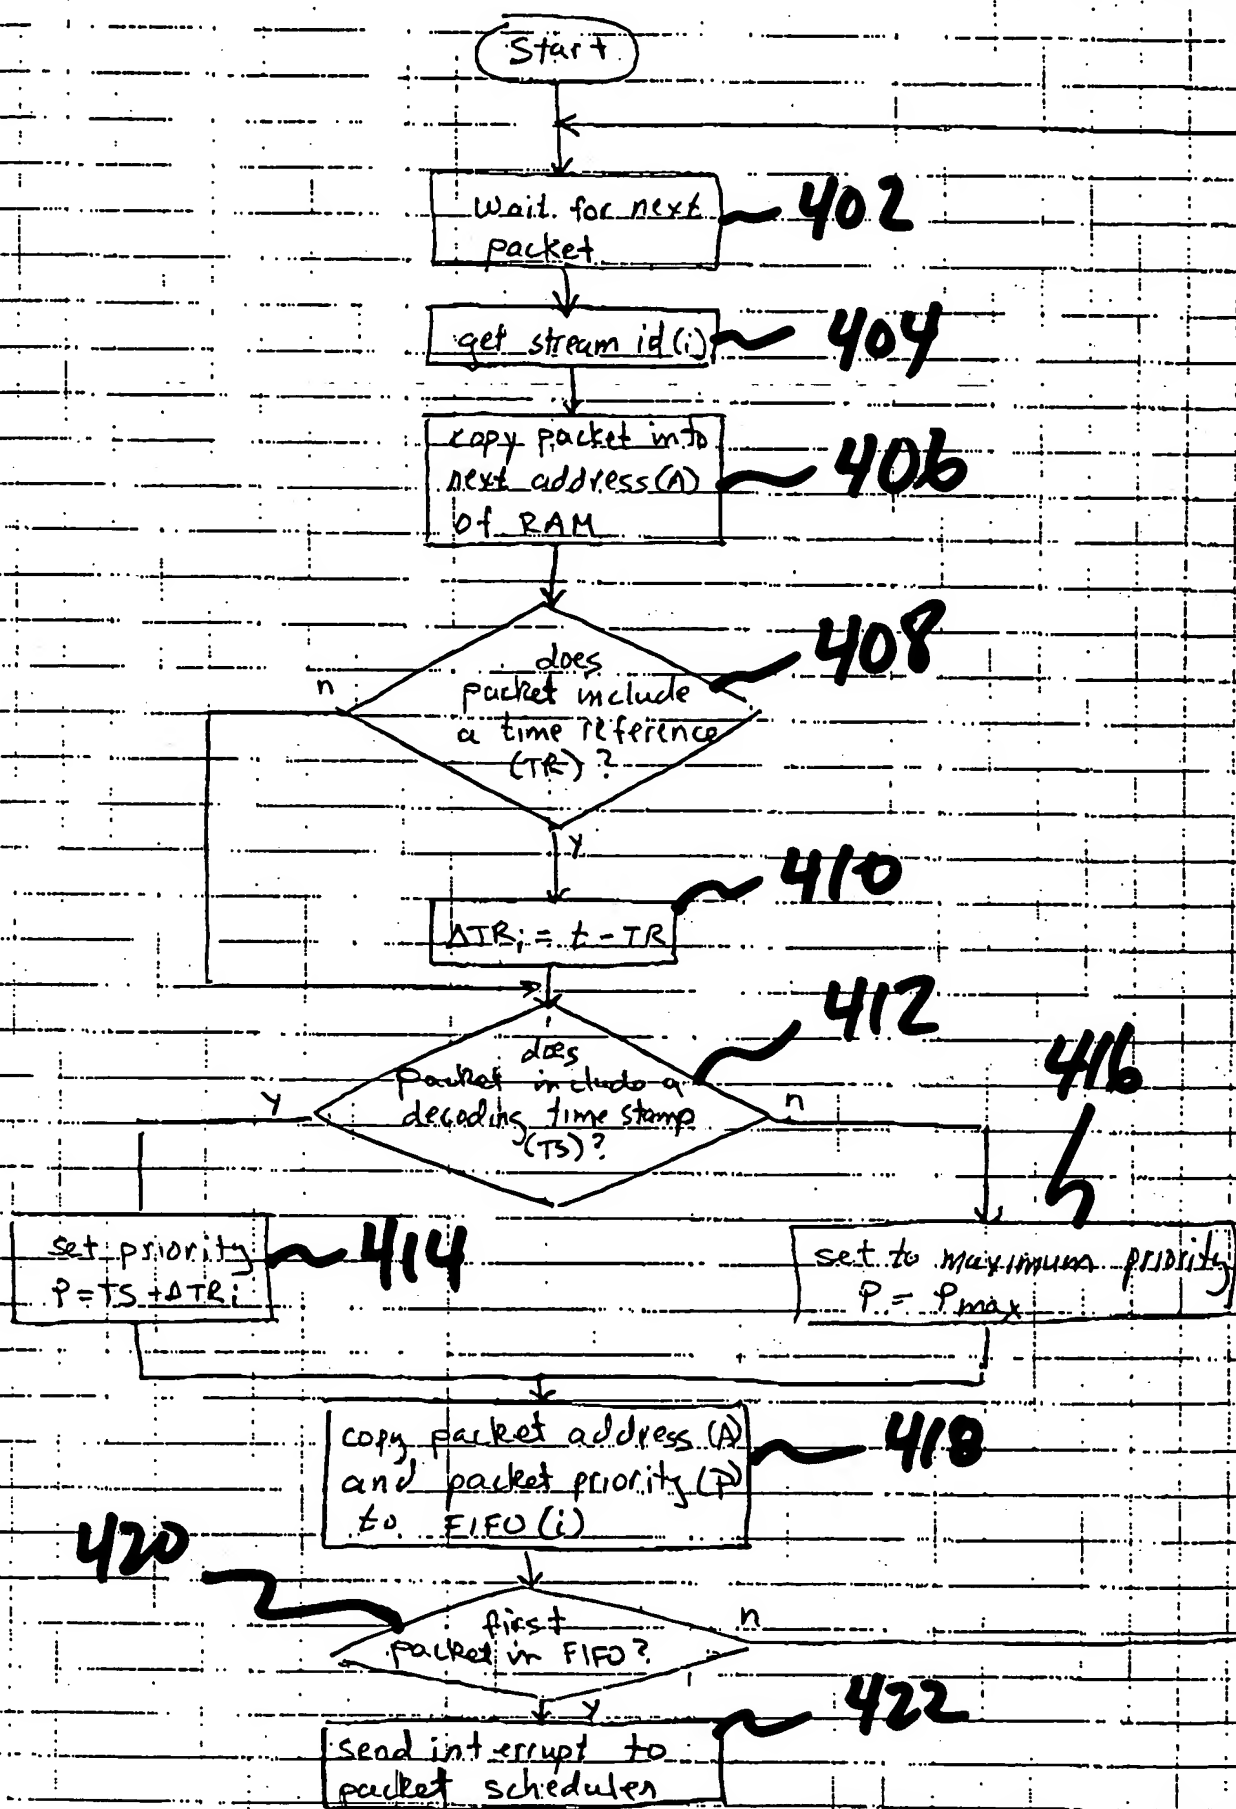 Start
Wait for next
packet
402
get stream id (i)
404
copy packet into
next address (A)
of RAM
406
does
packet include
a time reference
(TR) ?
408
n
y
410
ΔTRi = t - TR
412
does
packet include a
decoding time stamp
(TS) ?
y
n
416
set priority
P = TS + ΔTRi
414
set to maximum priority
P = Pmax
copy packet address (A)
and packet priority (P)
to FIFO (i)
418
420
first
packet in FIFO?
n
y
422
send interrupt to
packet scheduler